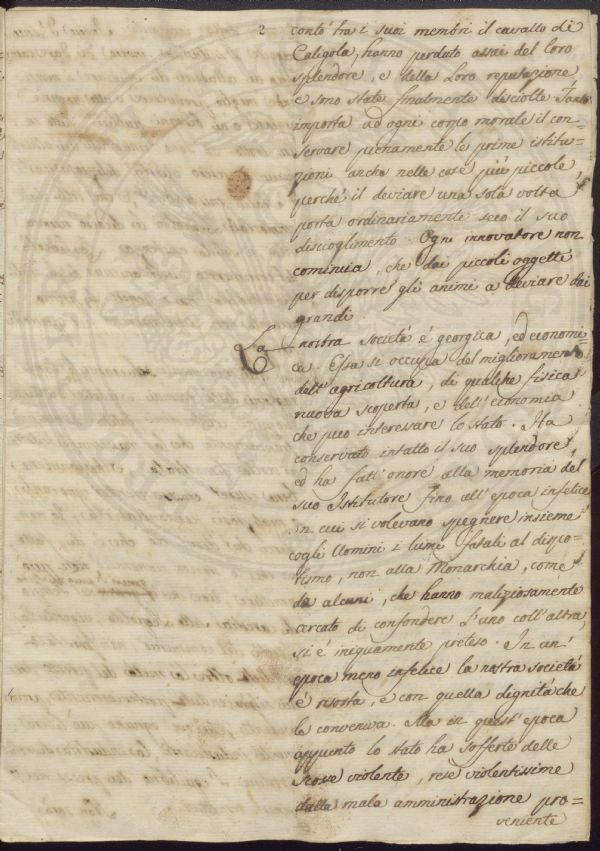 2
conté ha i suoi membri il cavallo di
Caligola, hanno perduto assai del loro
splendore, e della Loro reputazione
e sono state finalmente disciolte. Tanto
importa ad ogni corpo morale il con=
servare pienamente le prime istitu=
zioni anche nelle cose più piccole,
perché il deviare una sola volta
porta ordinariamente seco il suo
discioglimento. Ogni innovatore non
comincia, che dai piccoli oggetti
per disporre gli animi a deviare dai
grandi.
La nostra società è georgica, ed economi=
ca. Essa si occupa del miglioramento
dell'agricoltura, di qualche fisica
nuova scoperta, e dell'economia
che può interessare lo stato. Ha
conservato intatto il suo splendore,
ed ha fatt'onore alla memoria del
suo Istitutore fino all'epoca infelice
in cui si volevano spegnere insieme
cogli Uomini i lumi fatali al dispo=
tismo, non alla Monarchia, come
da alcuni, che hanno maliziosamente
cercato di confondere l'uno coll'altra,
si è iniquamente preteso. In un'
epoca meno infelice la nostra società
è risorta, e con quella dignità che
le conveniva. Ma in quest'epoca
appunto lo stato ha sofferte delle
scosse violente, rese violentissime
dalla mala amministrazione pro=
veniente